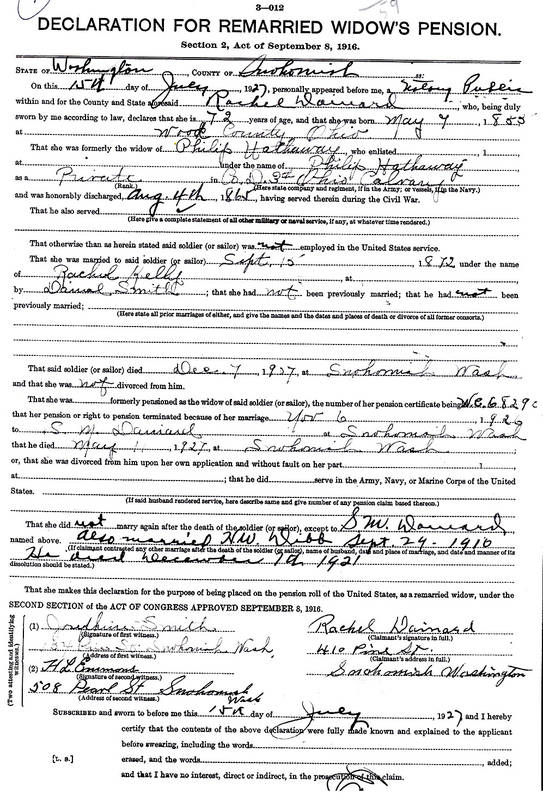 3—012
DECLARATION FOR REMARRIED WIDOW'S PENSION.
Section 2, Act of September 8, 1916.
STATE OF Washington, COUNTY OF Snohomish, ss:
On this 15th day of July, 1927, personally appeared before me, a Notary Public
within and for the County and State aforesaid Rachel Dainard, who, being duly
sworn by me according to law, declares that she is 72 years of age, and that she was born May 7, 1855
at Wood County Ohio
That she was formerly the widow of Philip Hathaway, who enlisted, 1
at under the name of Philip Hathaway
as a Private in Co. D. 3rd Ohio Calvary
(Rank.) (Here state company and regiment, if in the Army; or vessels, if in the Navy.)
and was honorably discharged, Aug. 4th, 1865, having served therein during the Civil War.
That he also served
(Here give a complete statement of all other military or naval service, if any, at whatever time rendered.)
That otherwise than as herein stated said soldier (or sailor) was not employed in the United States service.
That she was married to said soldier (or sailor) Sept. 15, 1872 under the name
of Rachel Kelly, at
by Daniel Smith; that she had not been previously married; that he had not been
previously married;
(Here state all prior marriages of either, and give the names and the dates and places of death or divorce of all former consorts.)
That said soldier (or sailor) died Dec. 7, 1907, at Snohomish Wash
and that she was not divorced from him.
That she was formerly pensioned as the widow of said soldier (or sailor), the number of her pension certificate being
that her pension or right to pension terminated because of her marriage Nov 6, 1926
to S. M. Dainard at Snohomish Wash
that he died May 1, 1927, at Snohomish Wash
or, that she was divorced from him upon her own application and without fault on her part, 1
at; that he did serve in the Army, Navy, or Marine Corps of the United
States.
(If said husband rendered service, here describe same and give number of any pension claim based thereon.)
That she did not marry again after the death of the soldier (or sailor), except to S M. Dainard,
named above. also married Webb Sept. 29 - 1910
(If claimant contracted any other marriage after the death of the soldier (or sailor), name of husband, date and place of marriage, and date and manner of its
He died December 1921
dissolution should be stated.)
That she makes this declaration for the purpose of being placed on the pension roll of the United States, as a remarried widow, under the
SECOND SECTION of the ACT OF CONGRESS APPROVED SEPTEMBER 8, 1916.
(Two attesting and identifying witnesses.)
(1) Smith Rachel Dainard
(Signature of first witness.) (Claimant's signature in full.)
St. Snohomish Wash, 410 Pine St.
(Address of first witness.) (Claimant's address in full.)
(2) H L Emmons Snohomish Washington
(Signature of second witness.)
508 Pearl St Snohomish Wash
(Address of second witness.)
SUBSCRIBED and sworn to before me this 15th day of July, 1927 and I hereby
certify that the contents of the above declaration were fully made known and explained to the applicant
before swearing, including the words
[L. S.] erased, and the words, added;
and that I have no interest, direct or indirect, in the prosecution of this claim.